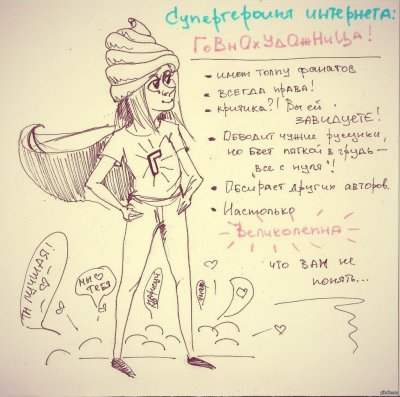 Супергероиня интернета:
ГоВнОхУдОжНиЦа!
- имеет толпу фанатов
- ВСЕГДА ПРАВА!
- критика?! Вы ей
ЗАВИДУЕТЕ!
- Обводит чужие рисунки,
но бьет пяткой в грудь –
"все с нуля"!
- Обсирает других авторов.
- Настолько
Великолепна
что ВАМ не
понять...
Г
ТЫ ЛУЧШАЯ!
МЫ ♡
ТЕБЯ
pikabu.ru